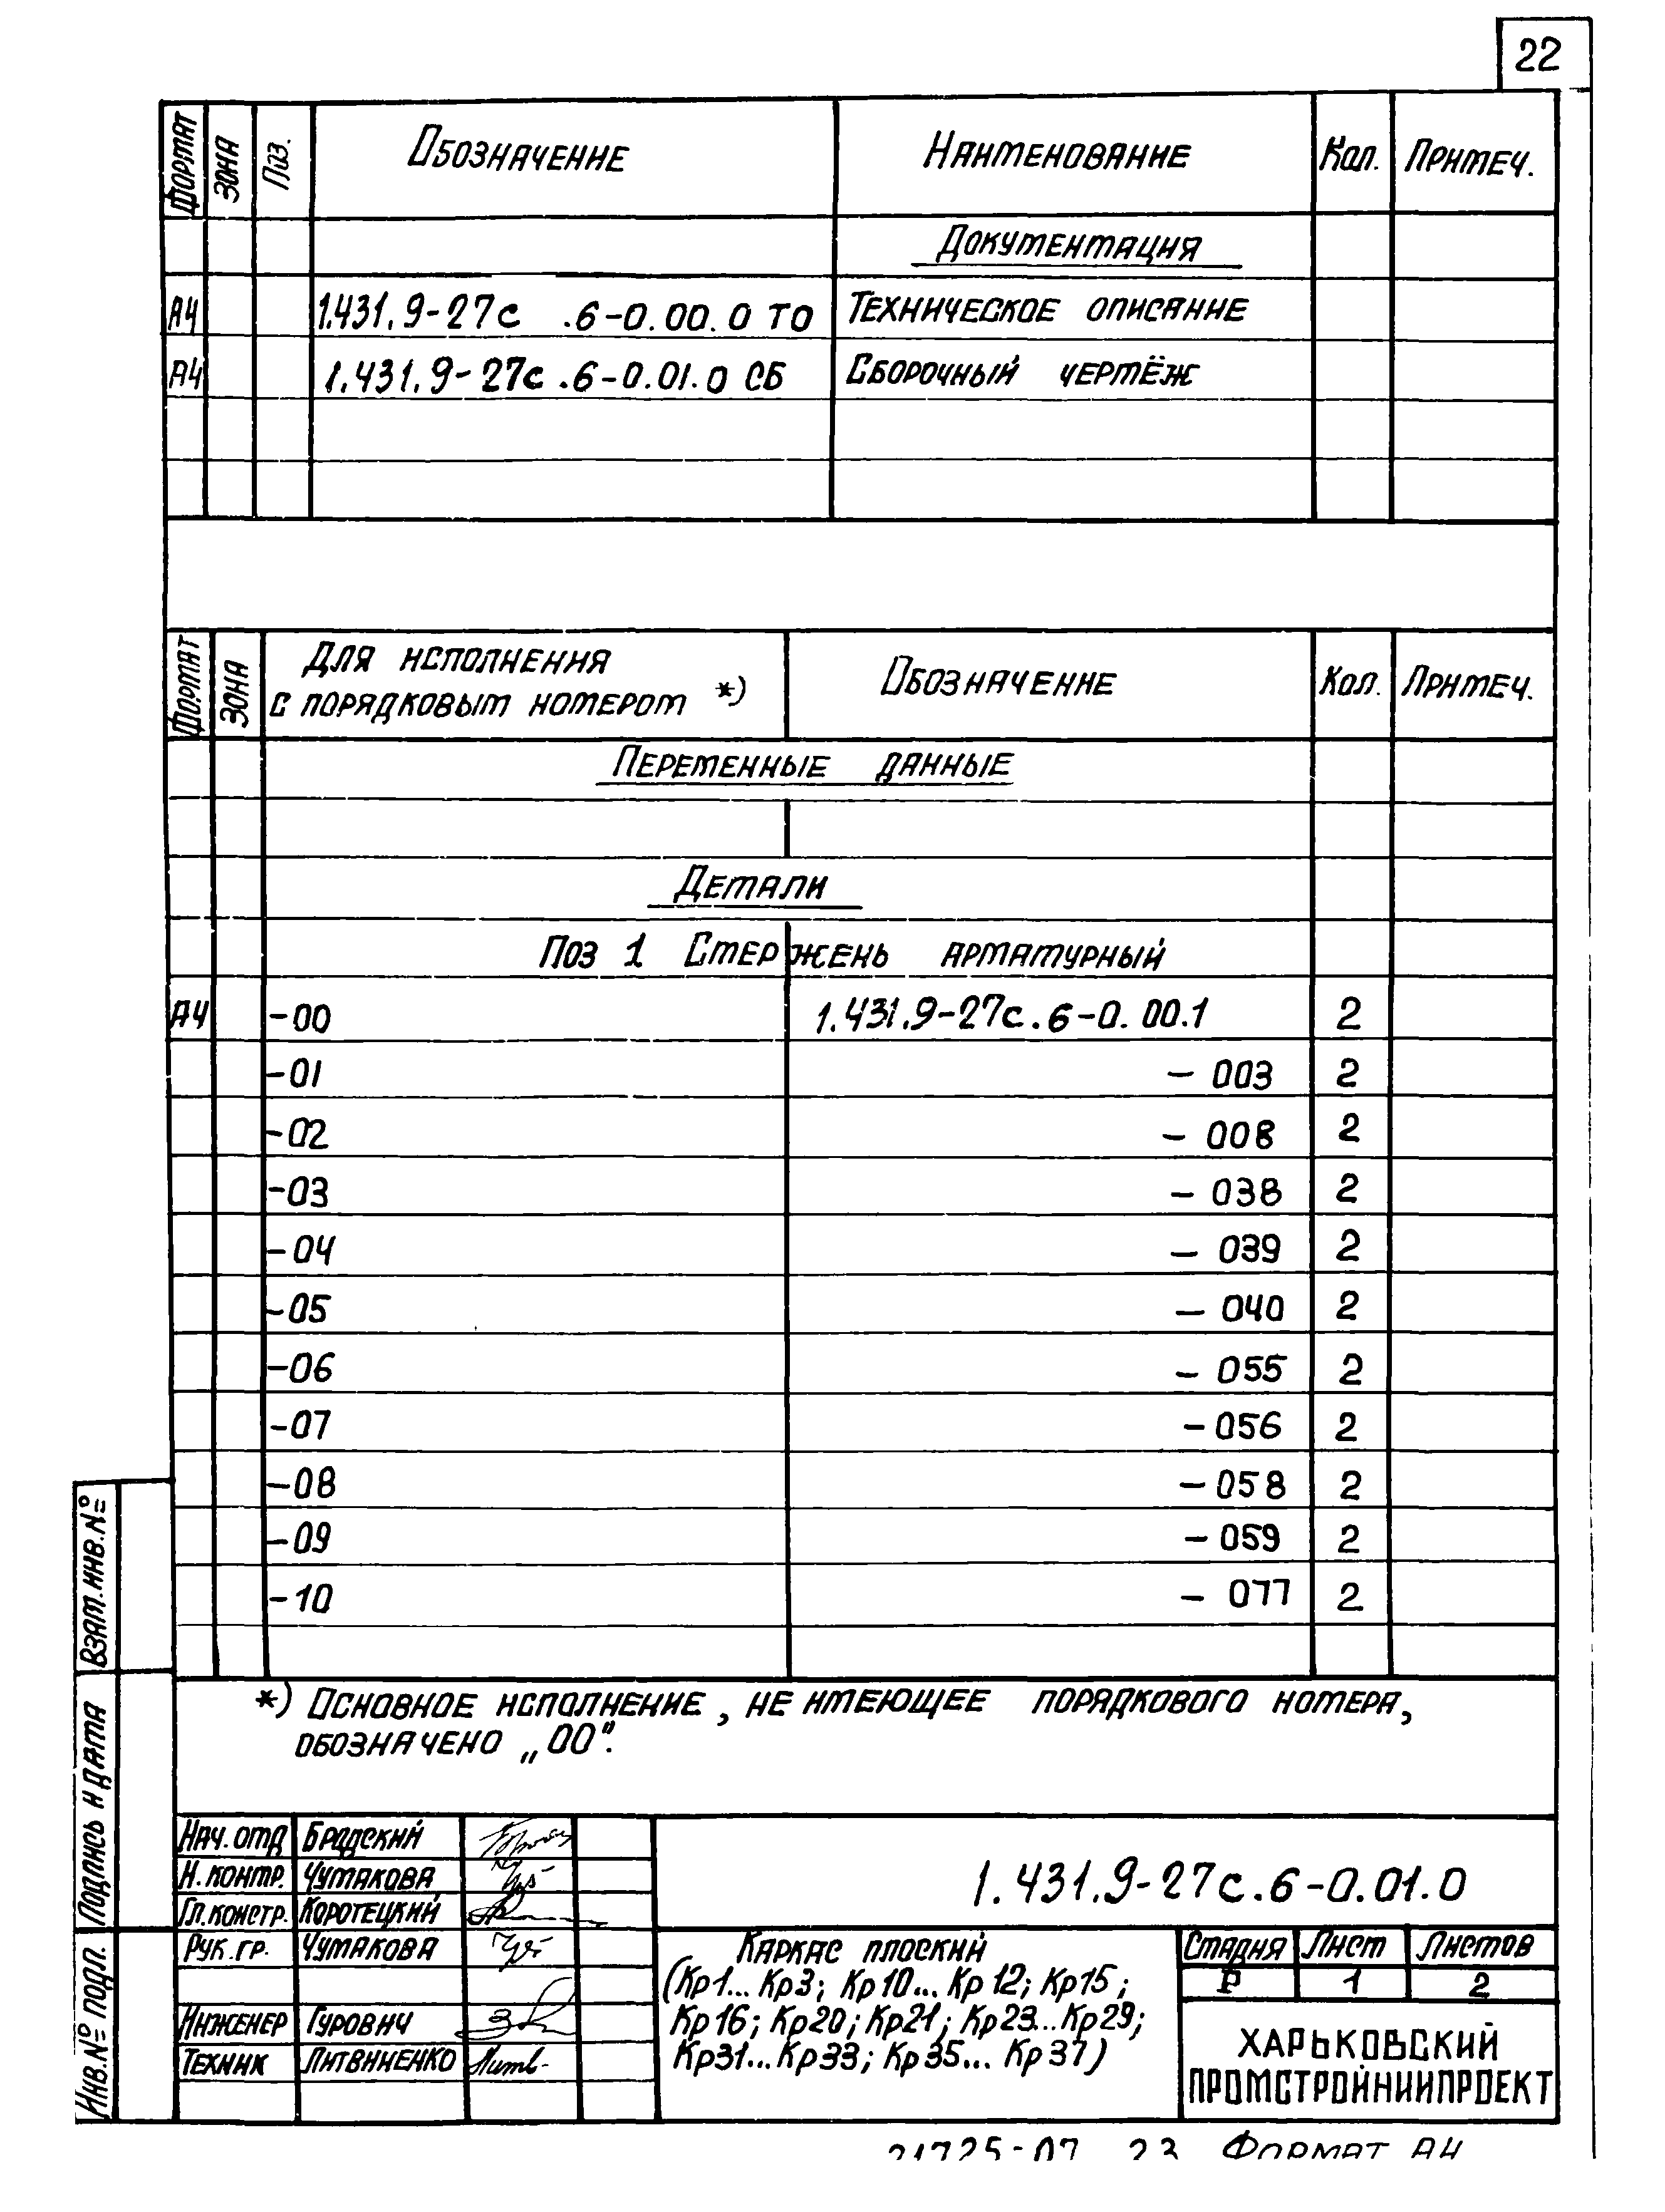 22
Формат Зона Поз. Обозначение Наименование Кол. Примеч.
Документация
А4 1.431.9-27с .6-0.00.0 ТО Техническое описание
А4 1.431.9-27с.6-0.01.0 СБ Сборочный чертёж
Формат Зона Для исполнения с порядковым номером *) Обозначение Кол. Примеч.
Переменные данные
Детали
Поз 1 Стержень арматурный
А4 -00 1.431.9-27с.6-0.00.1 2
-01 - 003 2
-02 - 008 2
-03 - 038 2
-04 - 039 2
-05 - 040 2
-06 - 055 2
-07 - 056 2
-08 - 058 2
-09 - 059 2
-10 - 077 2
*) Основное исполнение, не имеющее порядкового номера,
обозначено „00".
Взам. инв. №
Подпись и дата
Инв. № подл.
Нач. отд Бродский
Н. контр. Чумакова
Гл. констр. Коротецкий
Рук. гр. Чумакова
Инженер Гурович
Техник Литвиненко
1.431.9-27с.6-0.01.0
Каркас плоский
(Кр1... Кр3; Кр10... Кр12; Кр15;
Кр16; Кр20; Кр21; Кр23...Кр29;
Кр31... Кр33; Кр35... Кр37)
Стадия Лист Листов
Р 1 2
ХАРЬКОВСКИЙ
ПРОМСТРОЙНИИПРОЕКТ
21725-07 23 Формат А4